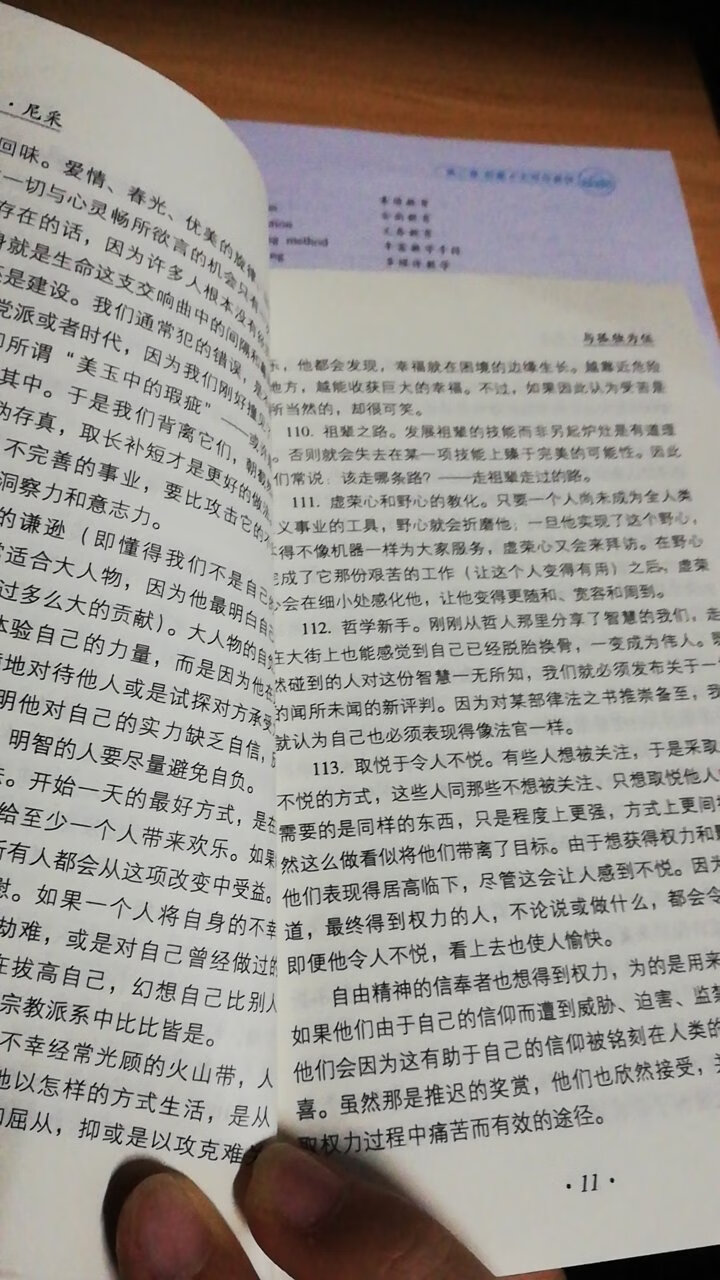 ·尼采
回味。爱情、春光、优美的旋律
一切与心灵畅所欲言的机会只有一
存在的话，因为许多人根本没有
身就是生命这支交响曲中的间隔和
是建设。我们通常犯的错误，是
党派或者时代，因为我们刚好撞见
所谓“美玉中的瑕疵”——或
其中。于是我们背离它们，朝
伪存真，取长补短才是更好的做
不完善的事业，要比攻击它的不
洞察力和意志力。
的谦逊（即懂得我们不是自己的
适合大人物，因为他最明白自己
过多么大的贡献）。大人物的自负
体验自己的力量，而是因为他在
地对待他人或是试探对方承受
明他对自己的实力缺乏自信，
明智的人要尽量避免自负。
。开始一天的最好方式，是在
给至少一个人带来欢乐。如果
所有人都会从这项改变中受益。
慰。如果一个人将自身的不幸
劫难，或是对自己曾经做过的
在拔高自己，幻想自己比别人
宗教派系中比比皆是。
不幸经常光顾的火山带，人
他以怎样的方式生活，是从
屈从，抑或是以攻克难
method
义务教育
丰富教学手段
多媒体教学
与孤独为伍
乐，他都会发现，幸福就在困境的边缘生长。越靠近危险
地方，越能收获巨大的幸福。不过，如果因此认为受害是
所当然的，却很可笑。
110. 祖辈之路。发展祖辈的技能而非另起炉灶是有道理
。否则就会失去在某一项技能上臻于完美的可能性。因此
们常说：该走哪条路？——走祖辈走过的路。
111. 虚荣心和野心的教化。只要一个人尚未成为全人类
义事业的工具，野心就会折磨他；一旦他实现了这个野心，
得不像机器一样为大家服务，虚荣心又会来拜访。在野心
完成了它那份艰苦的工作（让这个人变得有用）之后，虚荣
心会在细小处感化他，让他变得更随和、宽容和周到。
112. 哲学新手。刚刚从哲人那里分享了智慧的我们，走
在大街上也能感觉到自己已经脱胎换骨，一变成为伟人。既
然碰到的人对这份智慧一无所知，我们就必须发布关于一
的闻所未闻的新评判。因为对某部律法之书推崇备至，我
就认为自己也必须表现得像法官一样。
113. 取悦于令人不悦。有些人想被关注，于是采取
不悦的方式，这些人同那些不想被关注、只想取悦他人
需要的是同样的东西，只是程度上更强，方式上更间
然这么做看似将他们带离了目标。由于想获得权力和
他们表现得居高临下，尽管这会让人感到不悦。因为
道，最终得到权力的人，不论说或做什么，都会令
即便他令人不悦，看上去也使人愉快。
自由精神的信奉者也想得到权力，为的是用来
如果他们由于自己的信仰而遭到威胁、迫害、监禁
他们会因为这有助于自己的信仰被铭刻在人类的
喜。虽然那是推迟的奖赏，他们也欣然接受，
取权力过程中痛苦而有效的途径。
·11·